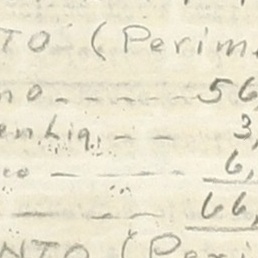 NTO (Perim
no ---- 56,
enLiq. -- 3,
co ---- 6,
---- 66,
NTO (Peri